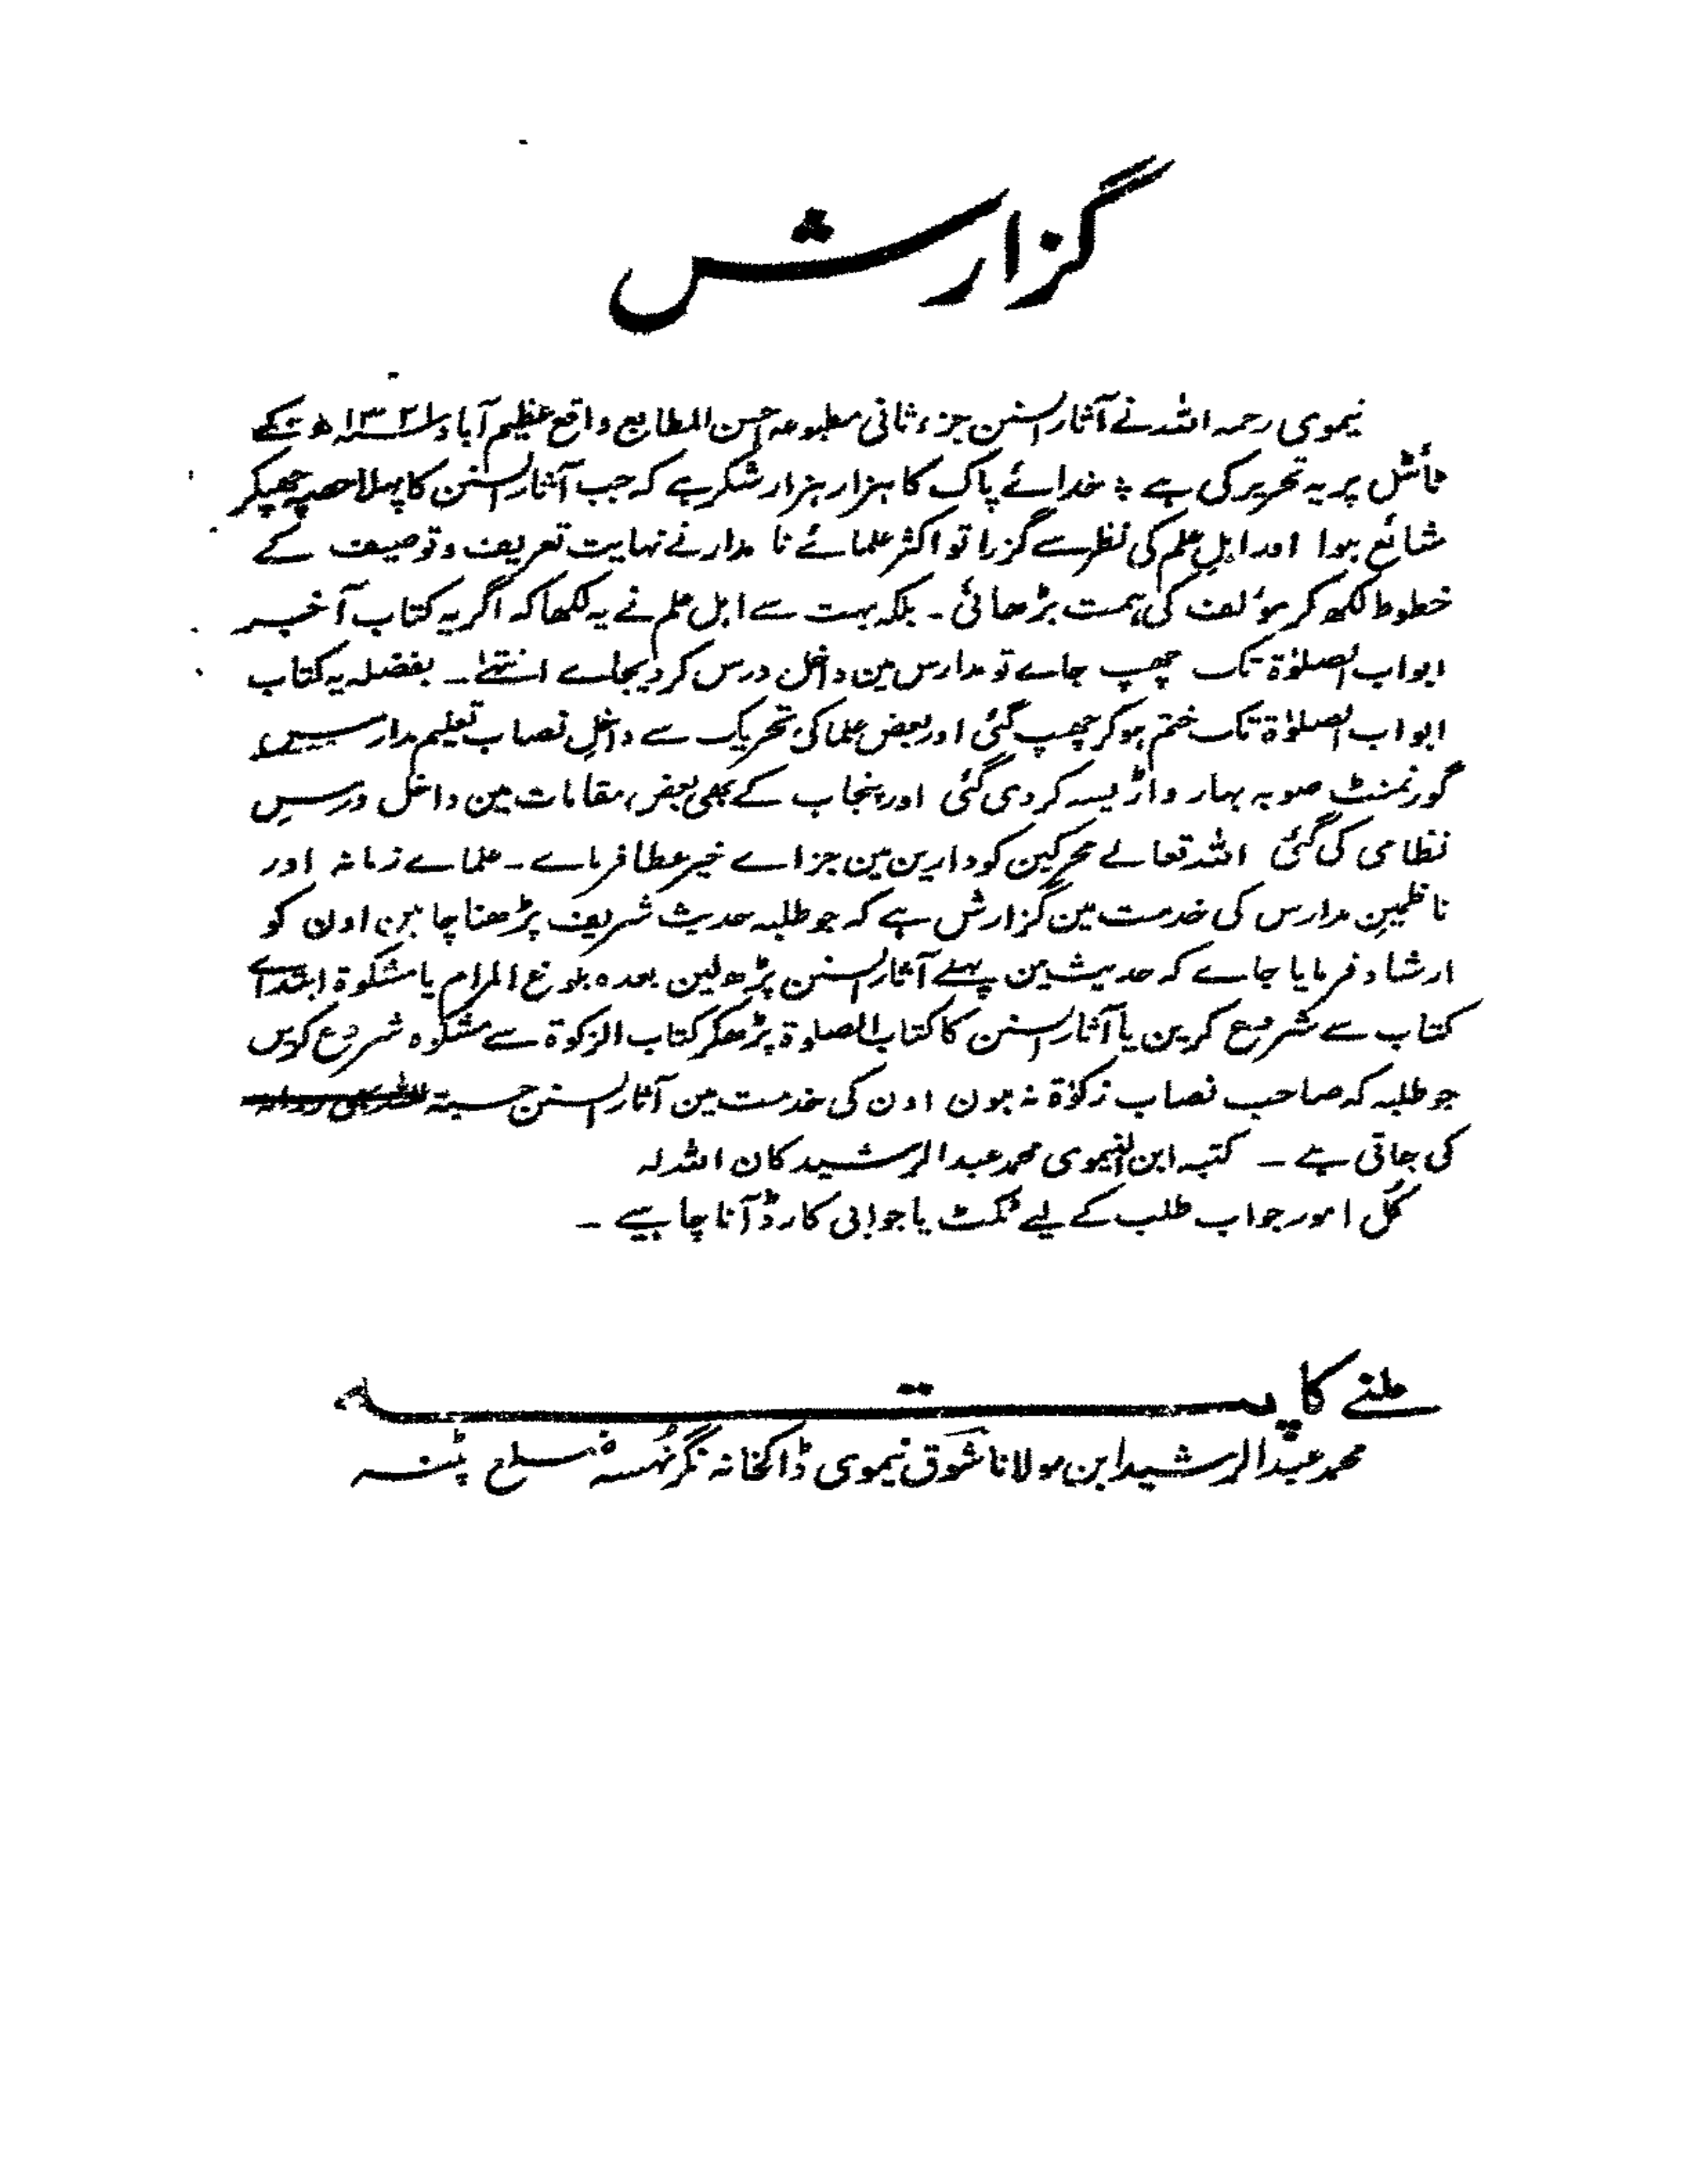 گزارش
نیموی رحمہ اللہ نے آثار السنن جزء ثانی مطبوعہ احسن المطابع واقع عظیم آباد ۱۳۲۱ھ کے
ٹائٹل پر یہ تحریر کی ہے ؛ خدائے پاک کا ہزار ہزار شکر ہے کہ جب آثار السنن کا پہلا حصہ چھپکر
شائع ہوا اور اہلِ علم کی نظر سے گزرا تو اکثر علمائے نامدار نے نہایت تعریف و توصیف کے
خطوط لکھ کر مؤلف کی ہمت بڑھائی ۔ بلکہ بہت سے اہل علم نے یہ لکھا کہ اگر یہ کتاب آخیر
ابواب الصلوٰۃ تک چھپ جاے تو مدارس مین داخل درس کر دیجاے انتہٰے ۔ بفضلہ یہ کتاب
ابواب الصلوٰۃ تک ختم ہو کر چھپ گئی اور بعض علما کی تحریک سے داخلِ نصاب تعلیم مدارس
گورنمنٹ صوبہ بہار و اڑیسہ کر دی گئی اور پنجاب کے بھی بعض مقامات مین داخل درسِ
نظامی کی گئی اللہ تعالے محرکین کو دارین مین جزاے خیر عطا فرماے ۔ علماے زمانہ اور
ناظمینِ مدارس کی خدمت مین گزارش ہے کہ جو طلبہ حدیث شریف پڑھنا چاہین اون کو
ارشاد فرمایا جاے کہ حدیث مین پہلے آثار السنن پڑھ لین بعدہ بلوغ المرام یا مشکوۃ ابتداے
کتاب سے شروع کرین یا آثار السنن کا کتاب الصلوۃ پڑھکر کتاب الزکوۃ سے مشکوہ شروع کریں
جو طلبہ کہ صاحب نصاب زکوٰۃ نہ ہون اون کی خدمت مین آثار السنن حسبۃ للہ روانہ
کی جاتی ہے ۔ کتبہ ابن النیموی محمد عبد الرشید کان اللہ لہ
کل امور جواب طلب کے لیے ٹکٹ یا جوابی کارڈ آنا چاہیے ۔
ملنے کا پتہ
محمد عبد الرشید ابن مولانا شوق نیموی ڈاکخانہ نگر نہسہ ضلع پٹنہ